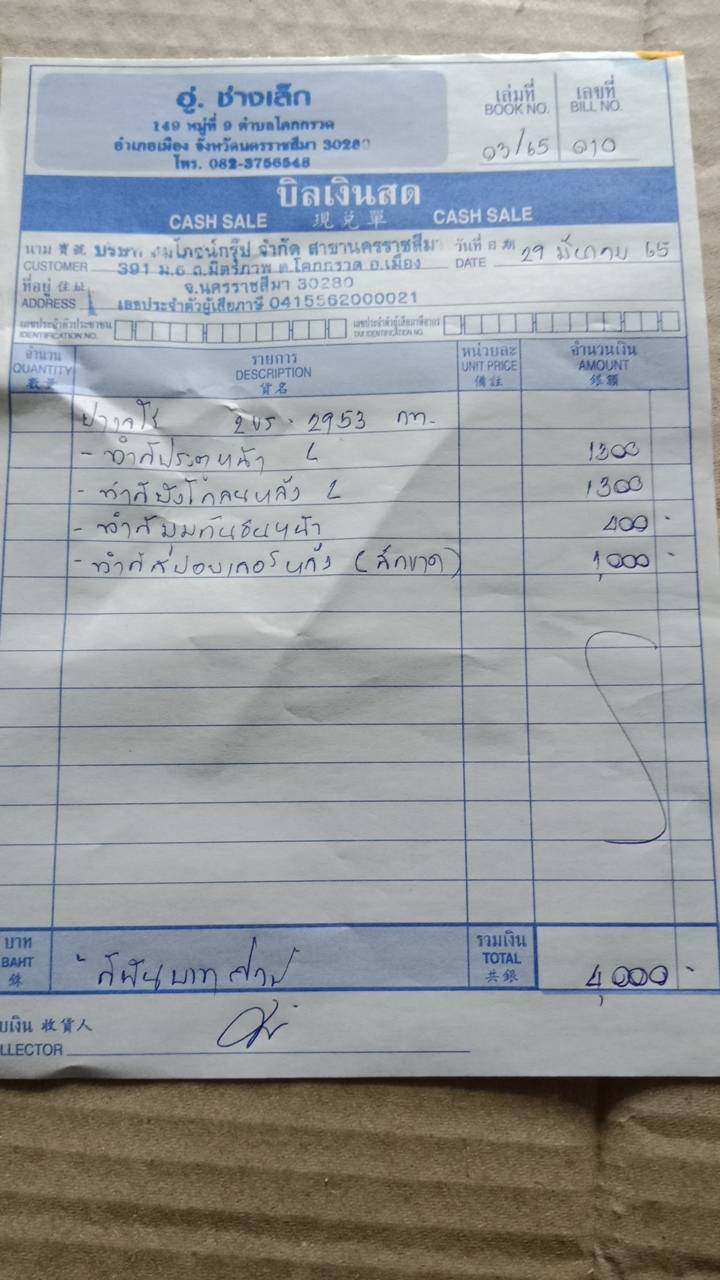 อู่. ช่างเล็ก
149 หมู่ที่ 9 ตำบลโคกกรวด
อำเภอเมือง จังหวัดนครราชสีมา 30280
โทร. 082-3756548
เล่มที่ เลขที่
BOOK NO. BILL NO.
03/65 010
บิลเงินสด
CASH SALE 現兑單 CASH SALE
นาม 寶號 บริษัท สาขานครราชสีมา วันที่ 日期 29 มีนาคม 65
CUSTOMER 391 ม.6 ถ.มิตรภาพ ต.โคกกรวด อ.เมือง DATE
ที่อยู่ 住址 จ.นครราชสีมา 30280
ADDRESS เลขประจำตัวผู้เสียภาษี 0415562000021
เลขประจำตัวประชาชน เลขประจำตัวผู้เสียภาษีอากร
IDENTIFICATION NO. TAX IDENTIFICATION NO.
จำนวน รายการ หน่วยละ จำนวนเงิน
QUANTITY DESCRIPTION UNIT PRICE AMOUNT
數量 貨名 備註 銀額
2953 กท.
- ทำสีประตูหน้า L 1300
- ทำสีบังโคลนหลัง L 1300
- ทำสีมุมกันชนหน้า 400 -
- ทำสีสปอยเลอร์หลัง ( ) 1,000 -
บาท รวมเงิน
BAHT สี่พันบาทถ้วน TOTAL 4,000 -
銖 共銀
บเงิน 收貨人
LLECTOR